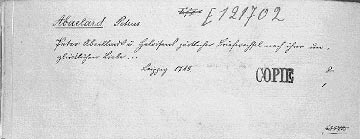 Abaelard Petrus I 121702
Peter Abaelards u. Heloisens zärtlicher Briefwechsel nach ihrer un-
glücklichen Liebe...
Leipzig 1785.
COPIE
8°